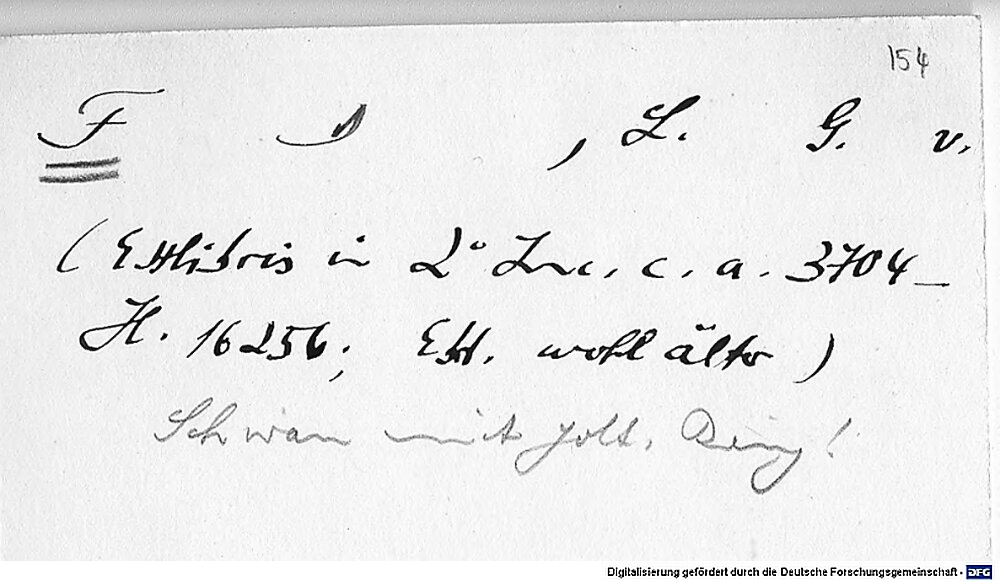 154
F D , L. G. v.
(Exlibris in 2° Inc. c. a. 3704 —
H. 16256; Exl. wohl älter)
Schwan mit gold. Ring!
Digitalisierung gefördert durch die Deutsche Forschungsgemeinschaft - DFG